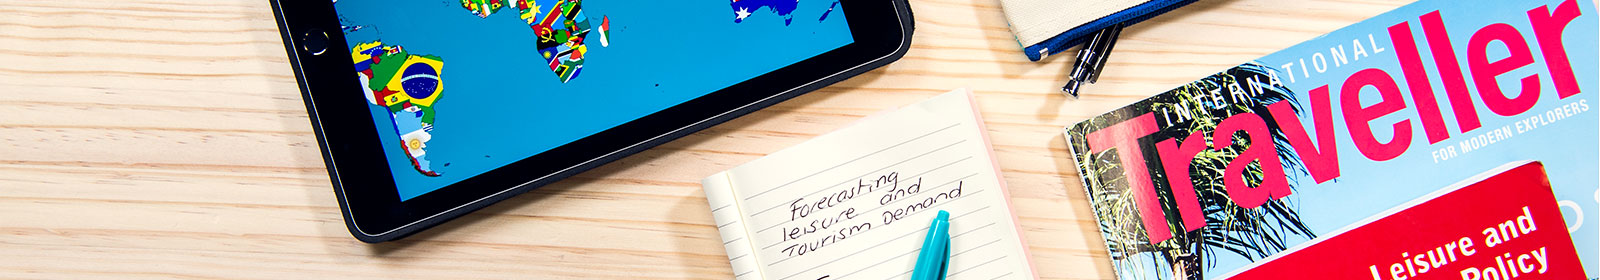 Forecasting
leisure and
Tourism Demand
INTERNATIONAL
Traveller
FOR MODERN EXPLORERS
Leisure and
Policy